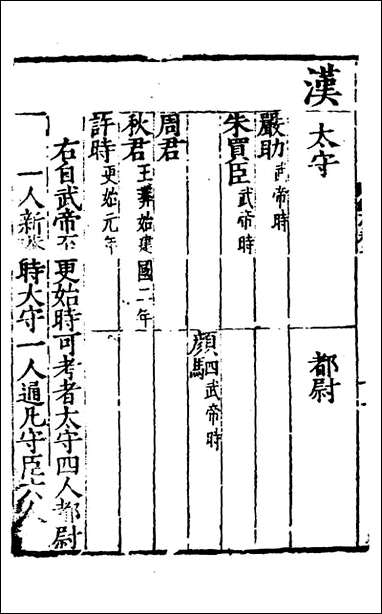 漢
太守　都尉
嚴助 武帝時
朱買臣 武帝時
顏駟 武帝時
周君
秋君 王莽始建國二年
許時 更始元年
右自武帝至更始時可考者太守四人都尉
一人新莽時大守一人通凡守臣六人